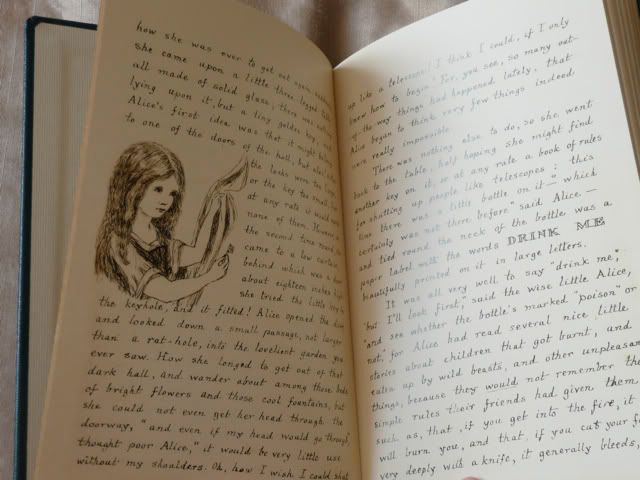 how she was ever to get out again: suddenly
she came upon a little three-legged table,
all made of solid glass; there was nothing
lying upon it, but a tiny golden key, and
Alice's first idea was that it might belong
to one of the doors of the hall, but alas! either
the locks were too large,
or the key too small, but
at any rate it would open
none of them. However, on
the second time round, she
came to a low curtain,
behind which was a door
about eighteen inches high:
she tried the little key in
the keyhole, and it fitted! Alice opened the door,
and looked down a small passage, not larger
than a rat-hole, into the loveliest garden you
ever saw. How she longed to get out of that
dark hall, and wander about among those beds
of bright flowers and those cool fountains, but
she could not even get her head through the
doorway, "and even if my head would go through,"
thought poor Alice, "it would be very little use
without my shoulders. Oh, how I wish I could shut
up like a telescope! I think I could, if I only
knew how to begin." For, you see, so many out-
of-the way things had happened lately, that
Alice began to think very few things indeed
were really impossible.
There was nothing else to do, so she went
back to the table, half hoping she might find
another key on it, or at any rate a book of rules
for shutting up people like telescopes: this
time there was a little bottle on it— "which
certainly was not there before" said Alice—
and tied round the neck of the bottle was a
paper label with the words DRINK ME
beautifully printed on it in large letters.
It was all very well to say "drink me,"
"but I'll look first," said the wise little Alice,
"and see whether the bottle's marked "poison" or
not," for Alice had read several nice little
stories about children that got burnt, and
eaten up by wild beasts, and other unpleasant
things, because they would not remember the
simple rules their friends had given them,
such as, that, if you get into the fire, it
will burn you, and that, if you cut your
very deeply with a knife, it generally bleeds,